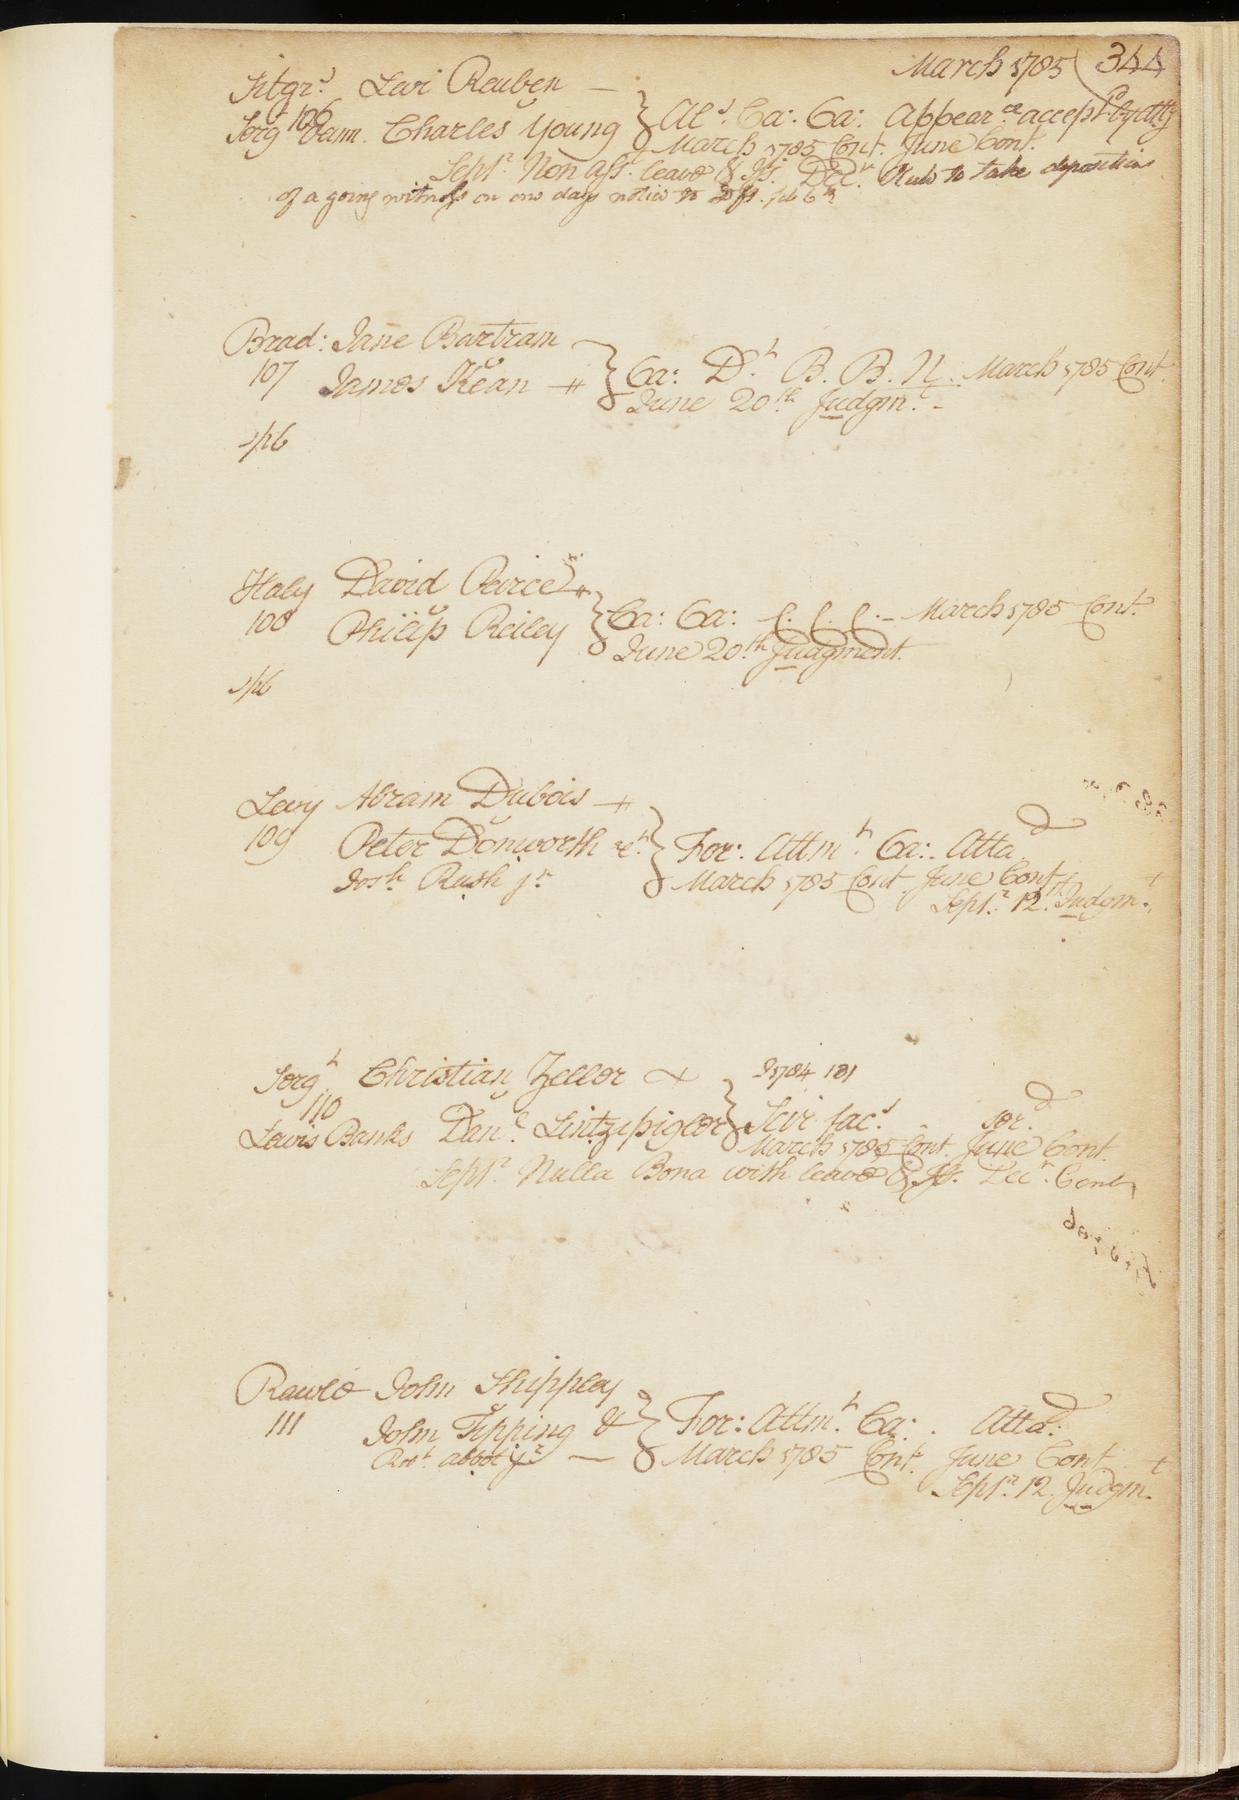 March 1785 344
Fitzgr.d Levi Reuben —
Serg.t 106 Dann. Charles Young } Al.s Ca: Ca: Appear.ce accept.d by atty
March 1785 Cont. June Cont.
Sept.r Non Ass.t leave & Iss. Dec.r Rule to take deposition
of a going witness on one days notice to Dft. feb 6th
Brad: Jane Bartram
107 James Kean — # } Ca: D.t B. B. N. March 1785 Cont.
June 20th Judgm.t -
Haly David Peirce #
108 Philip Reiley } Ca: Ca: C. C. C. — March 1785 Cont.
June 20th Judgment.
Levy Abram Dubois — #
109 Peter Donworth & } For: Attm.t Ca: Atta.d
Jos.h Rush jr March 1785 Cont June Cont
Sept.r 12th Judgm.t
Serg.t Christian Zeller 1784 181
110
Lewis Banks Dan.l Lintzipigler } Scir fac.s
March 1785 Cont. June Cont.
Sept.r Nulla Bona with leave & Iss. Dec.r Cont
Rawle John Shippley
111 John Tipping & } For: Attm.t Ca: . Atta.d
Rob.t abbot jr — March 1785 Cont. June Cont
Sept.r 12. Judgm.t